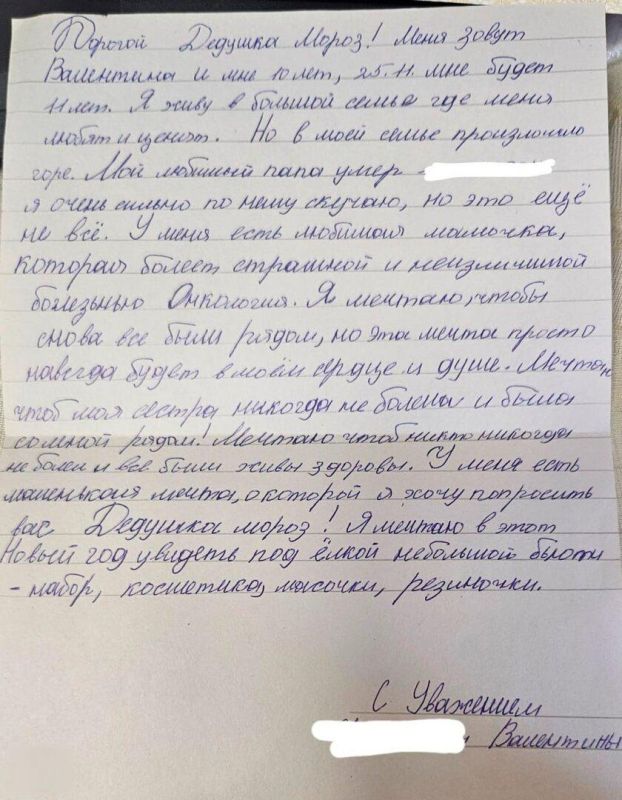 Дорогой Дедушка Мороз! Меня зовут
Валентина и мне 10 лет, 25.11. мне будет
11 лет. Я живу в большой семье где меня
любят и ценят. Но в моей семье произлошло
горе. Мой любимый папа умер -
я очень сильно по нему скучаю, но это ещё
не всё. У меня есть любимая мамочка,
которая болеет страшной и неизличимой
болезнью Онкология. Я мечтаю, чтобы
снова все были рядом, но эта мечта просто
навсегда будет в моём сердце и душе. Мечтаю
чтоб моя сестра никогда не болела и была
сомной рядом! Мечтаю чтоб никто никогда
не болел и все были живы здоровы. У меня есть
маленькая мечта, о которой я хочу попросить
вас Дедушка мороз! Я мечтаю в этот
Новый год увидеть под ёлкой небольшой бьюти
- набор, косметика, масочки, резиночки.
С Уважением
Валентины